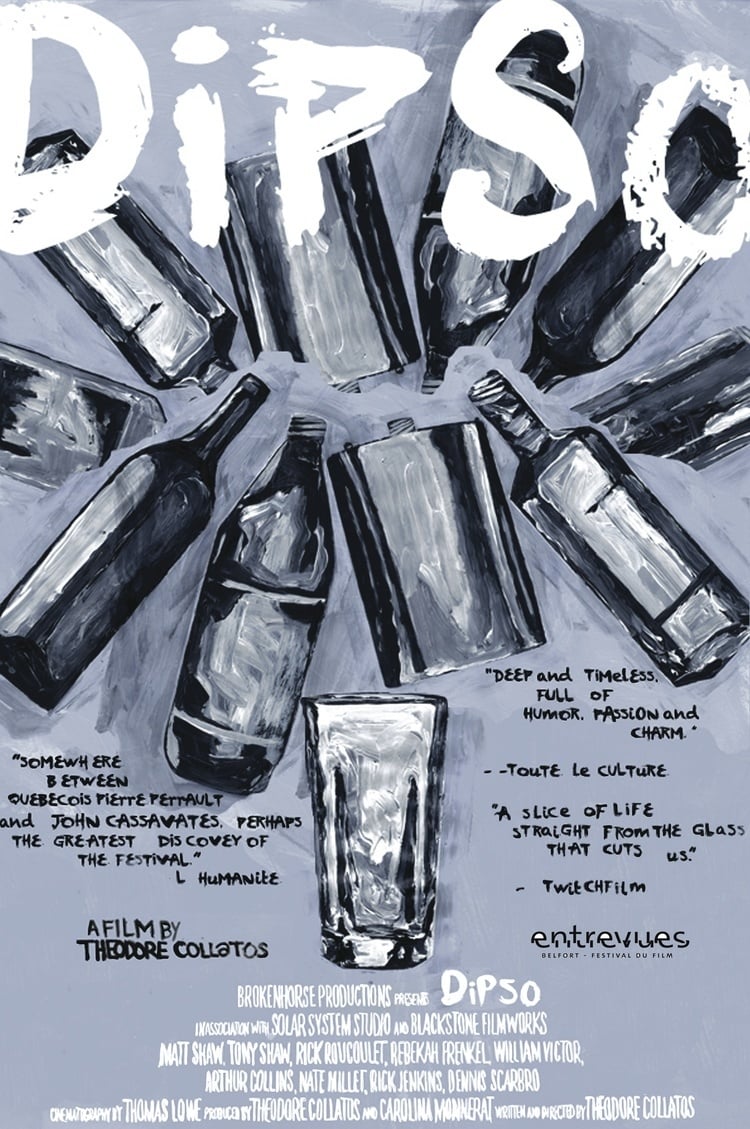 DiPSO
"DEEP and TIMELESS.
FULL OF
HUMOR, PASSION and
CHARM."
--TOUTE LE CULTURE
"SOMEWHERE
BETWEEN
QUEBECOIS PIERRE PERRAULT
and JOHN CASSAVATES, PERHAPS
THE GREATEST DISCOVEY OF
THE FESTIVAL."
L HUMANITE
"A SLICE OF LIFE
STRAIGHT FROM THE GLASS
THAT CUTS US."
- TWITCHFILM
A FILM BY
THEODORE COLLATOS
entrevues
BELFORT - FESTIVAL DU FILM
BROKENHORSE PRODUCTIONS PRESENTS DiPSO
IN ASSOCIATION WITH SOLAR SYSTEM STUDIO AND BLACKSTONE FILMWORKS
MATT SHAW, TONY SHAW, RICK ROUCOULET, REBEKAH FRENKEL, WILLIAM VICTOR,
ARTHUR COLLINS, NATE MILLET, RICK JENKINS, DENNIS SCARBRO
CINEMATOGRAPHY BY THOMAS LOWE PRODUCED BY THEODORE COLLATOS AND CAROLINA MONNERAT WRITTEN AND DIRECTED BY THEODORE COLLATOS